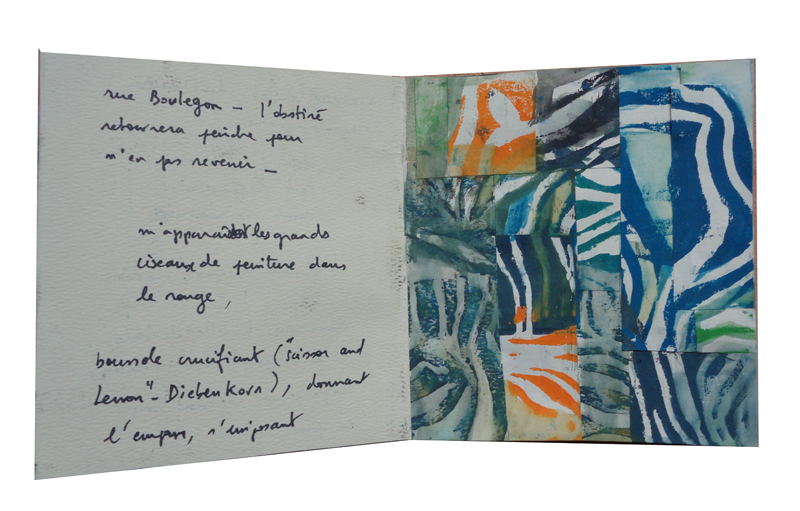 rue Boulegon – l'obstiné
retournera peindre pour
n'en pas revenir –
m'apparaissent les grands
ciseaux de peinture dans
le rouge,
boussole crucifiant ("Scissor and
Lemon" – Diebenkorn), donnant
l'empan, s'imposant